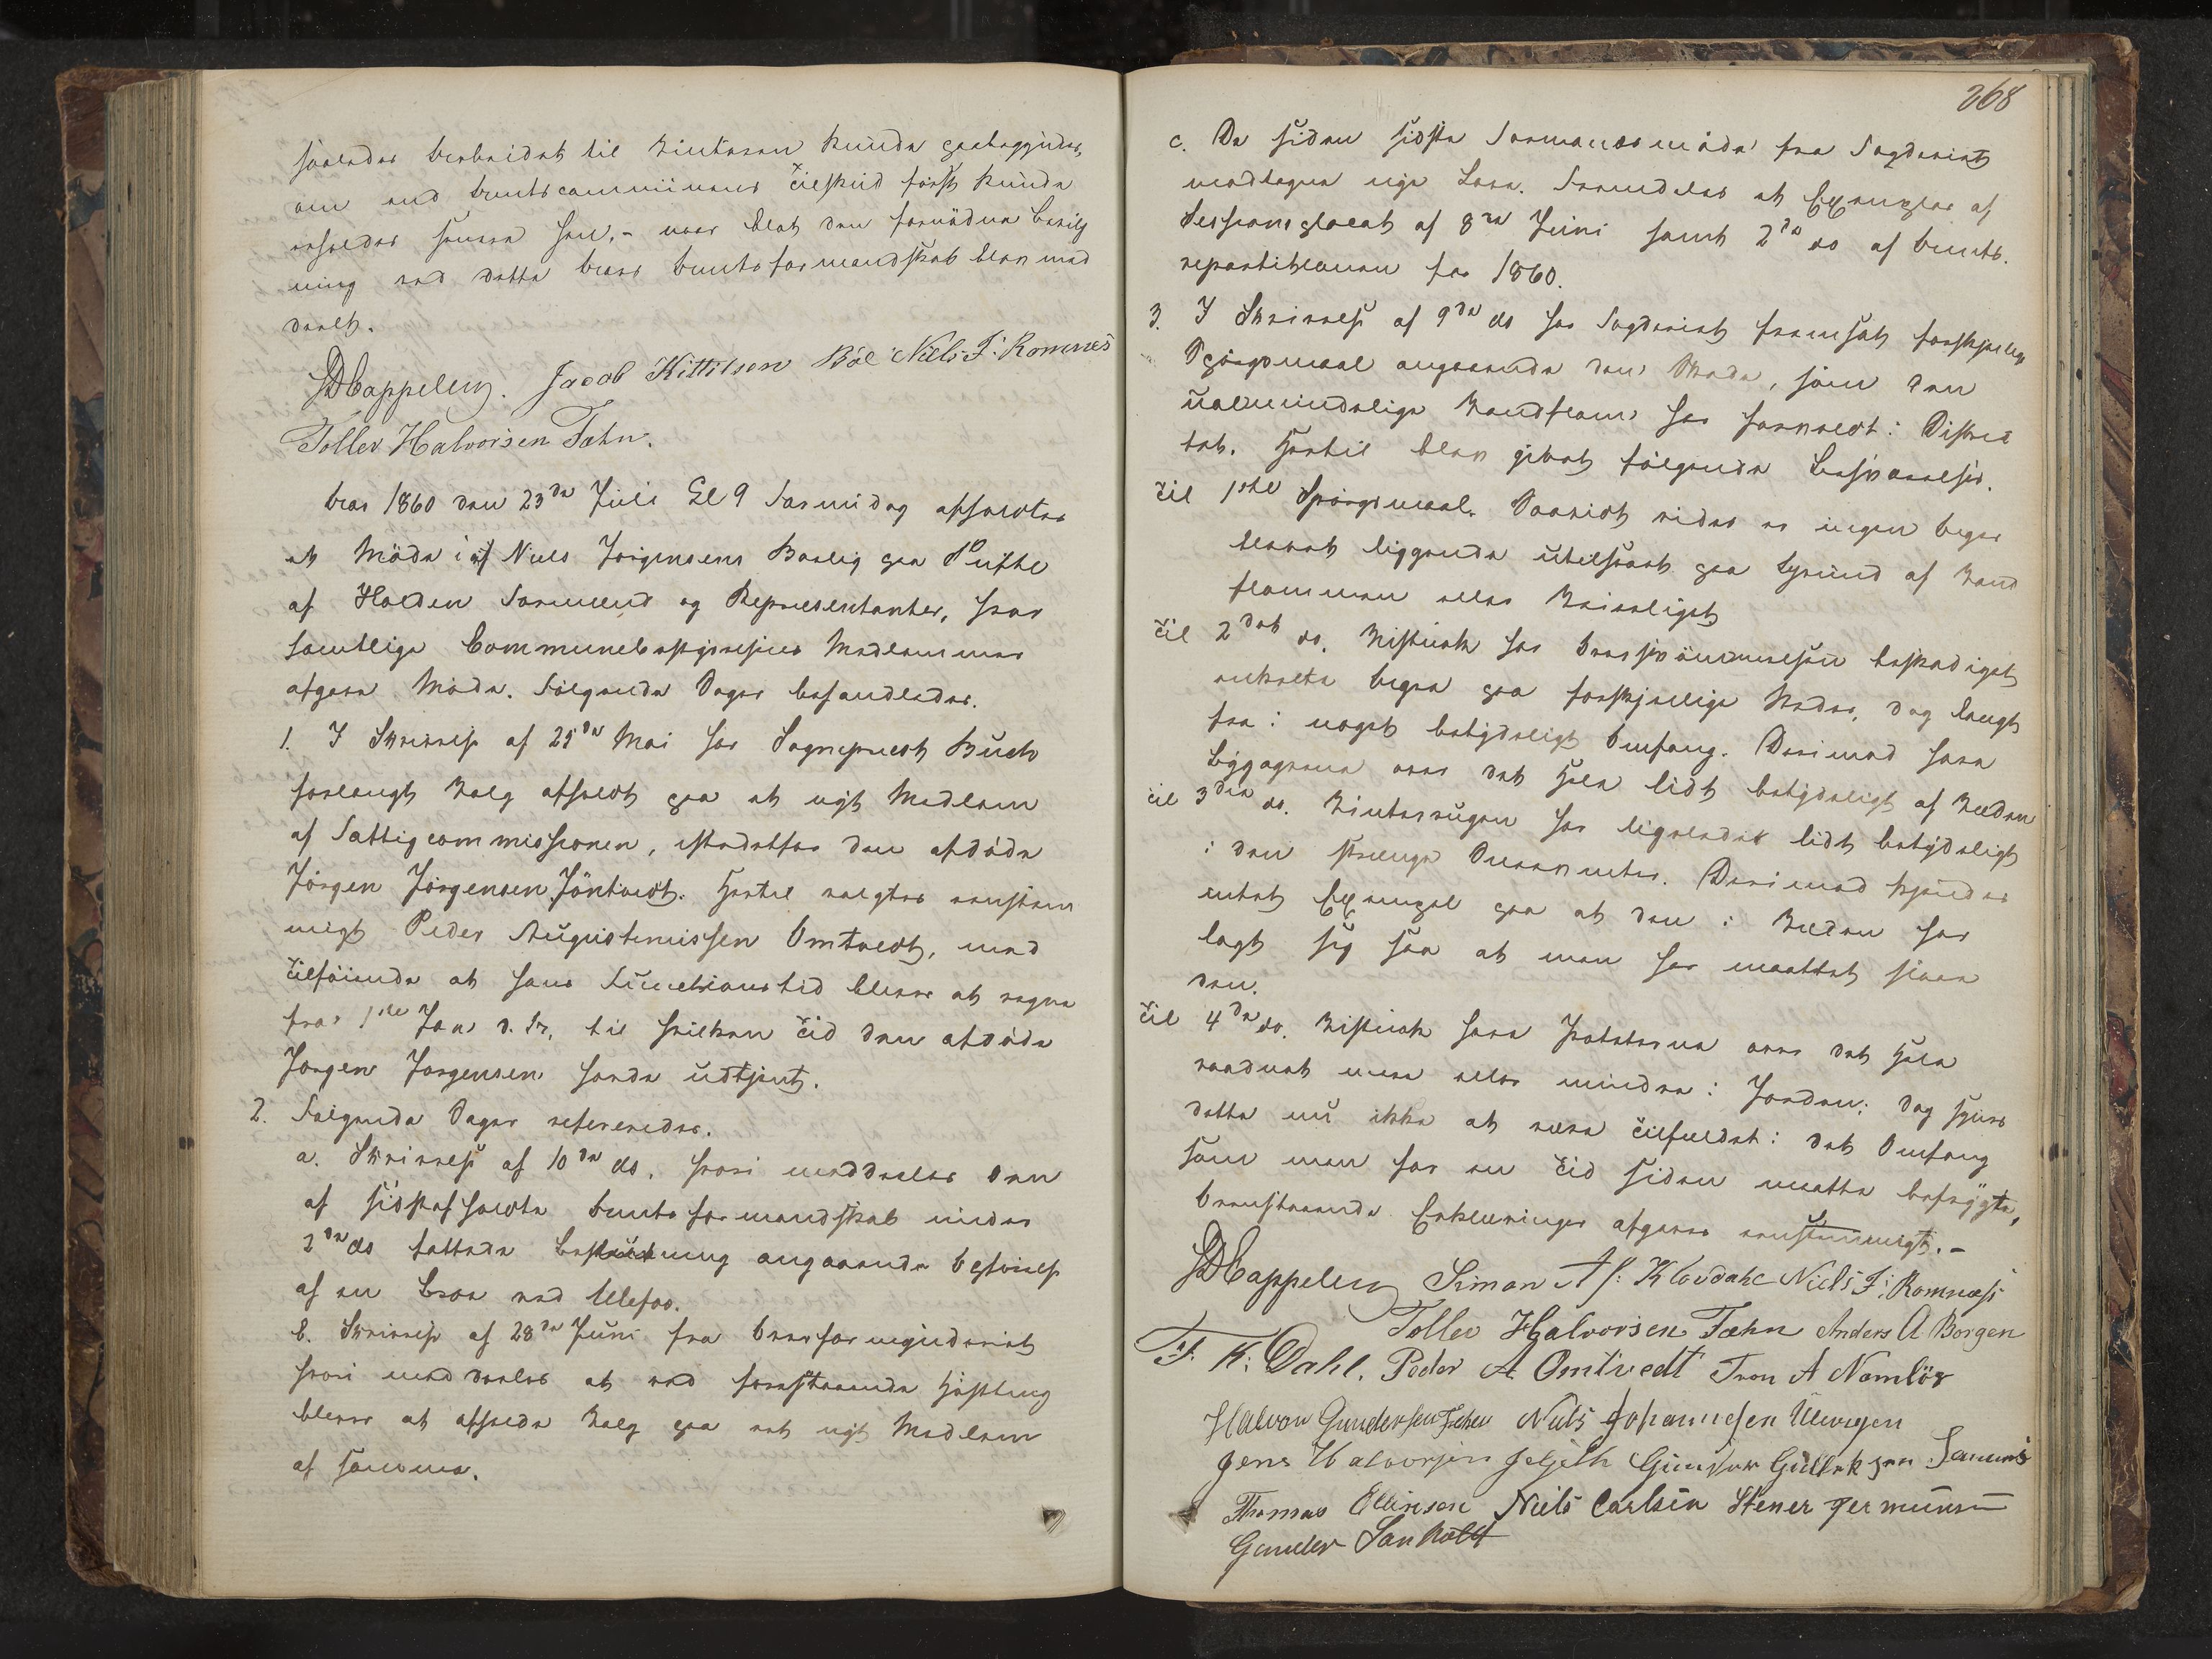 saaledes bearbeidet til Vinteren kunde paabegyndes,
om end Amtscommunens Tilskud først kunde
erholdes senere hen, - naar blot den fornødne Bevilg
ning ved dette Aars Amtsformandskab blev med
deelt.
DCappelen. Jacob Kittilsen Bøe Niels F: Romnes
Tollev Halvorsen Fæhn.
Aar 1860 den 23de Juli Kl 9 Formidag afholdtes
et Møde i af Niels Jørgensens Bolig paa Ulefos
af Holden Formænd og Repræsentanter, hvor
samtlige Communebestyrelsens Medlemmer
afgave Møde. Følgende Sager behandledes.
1. I Skrivelse af 25de Mai har Sognepræst Buch
forlangt Valg afholdt paa et nyt Medlem
af Fattigcommissionen, istedetfor den afdøde
Jørgen Jørgensen Jøntvedt. Hertil valgtes enstem
migt Peder Augustinussen Omtvedt, med
Tilføiende at hans Functionstid bliver at regne
fra 1ste Jan d. Ar, til hvilken Tid den afdøde
Jørgen Jørgensen havde udtjent.
2. Følgende Sager refereredes.
a. Skrivelse af 10de ds. hvori meddeeles den
af sidstafholdte Amtsformandskab under
2den ds fattede Beslutning angaaende Opførelse
af en Broe ved Ulefos.
b. Skrivelse af 28de Juni fra Overformynderiet
hvori meddeeles at ved forestaaende Høstting
bliver at afholde Valg paa et nyt Medlem
af samme.
268
c. Da siden sidste Formandsmøde fra Fogderiet
modtagne nye Love. Fremdeles et Exemplar af
Sessionsplacat af 8de Juni samt 2de do af Amts.
repartitionen for 1860.
3. I Skrivelse af 9de ds har Fogderiet fremsat forskjellige
Spørgsmaal angaaende den Skade, som den
ualmindelige Vandflom har forvoldt i Distric
tet. Hertil blev givet følgende Besvarelser.
Til 1ste Spørgsmaal. Saavidt vides er ingen Ager
blevet liggende utilsaaet paa Grund af Vand
flommen eller Veirliget
Til 2det do. Vistnok har Oversvømmelsen beskadiget
enkelte Agre paa forskjellige Steder, dog langt
fra i noget betydeligt Omfang. Derimod have
Bygagrene over det Hele lidt betydeligt af Væden
Til 3die do. Vinterrugen har ligeledes lidt betydeligt
i den strenge Sneevinter. Derimod kjendes
intet Exempel paa at den i Væden har
lagt sig saa at man har maattet slaae
den.
Til 4de do. Vistnok have Poteterne over det Hele
raadnet mere eller mindre i Jorden; dog synes
dette nu ikke at være Tilfældet i det Omfang
som man for en Tid siden maatte befrygte,
Ovenstaaende Erklæringer afgaves enstemmigt. -
DCappelen Simon A/: Klovdahl Niels F: Romnæs
Tollev Halvorsen Fæhn Anders A Borgen
F. K: Dahl. Peder A. Omtvedt Tron A Namløs
Halvor Gundersen Niels Johannesen Ulevigen
Jens Halvorsen Gunder Gullaksen
Thomas Ellevsen Niels Carlsen Stener Germunsen
Gunder Sankolt